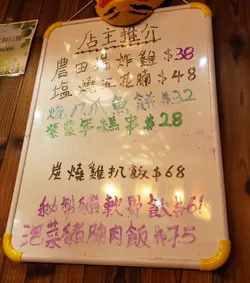 店主推介
農田雞炸雞 $38
塩燒五花腩 $48
燒八爪魚餅 $32
紫菜年糕串 $28
炭燒雞扒飯 $68
秘制豬軟骨飯 $6
泡菜豬腩肉飯 $75